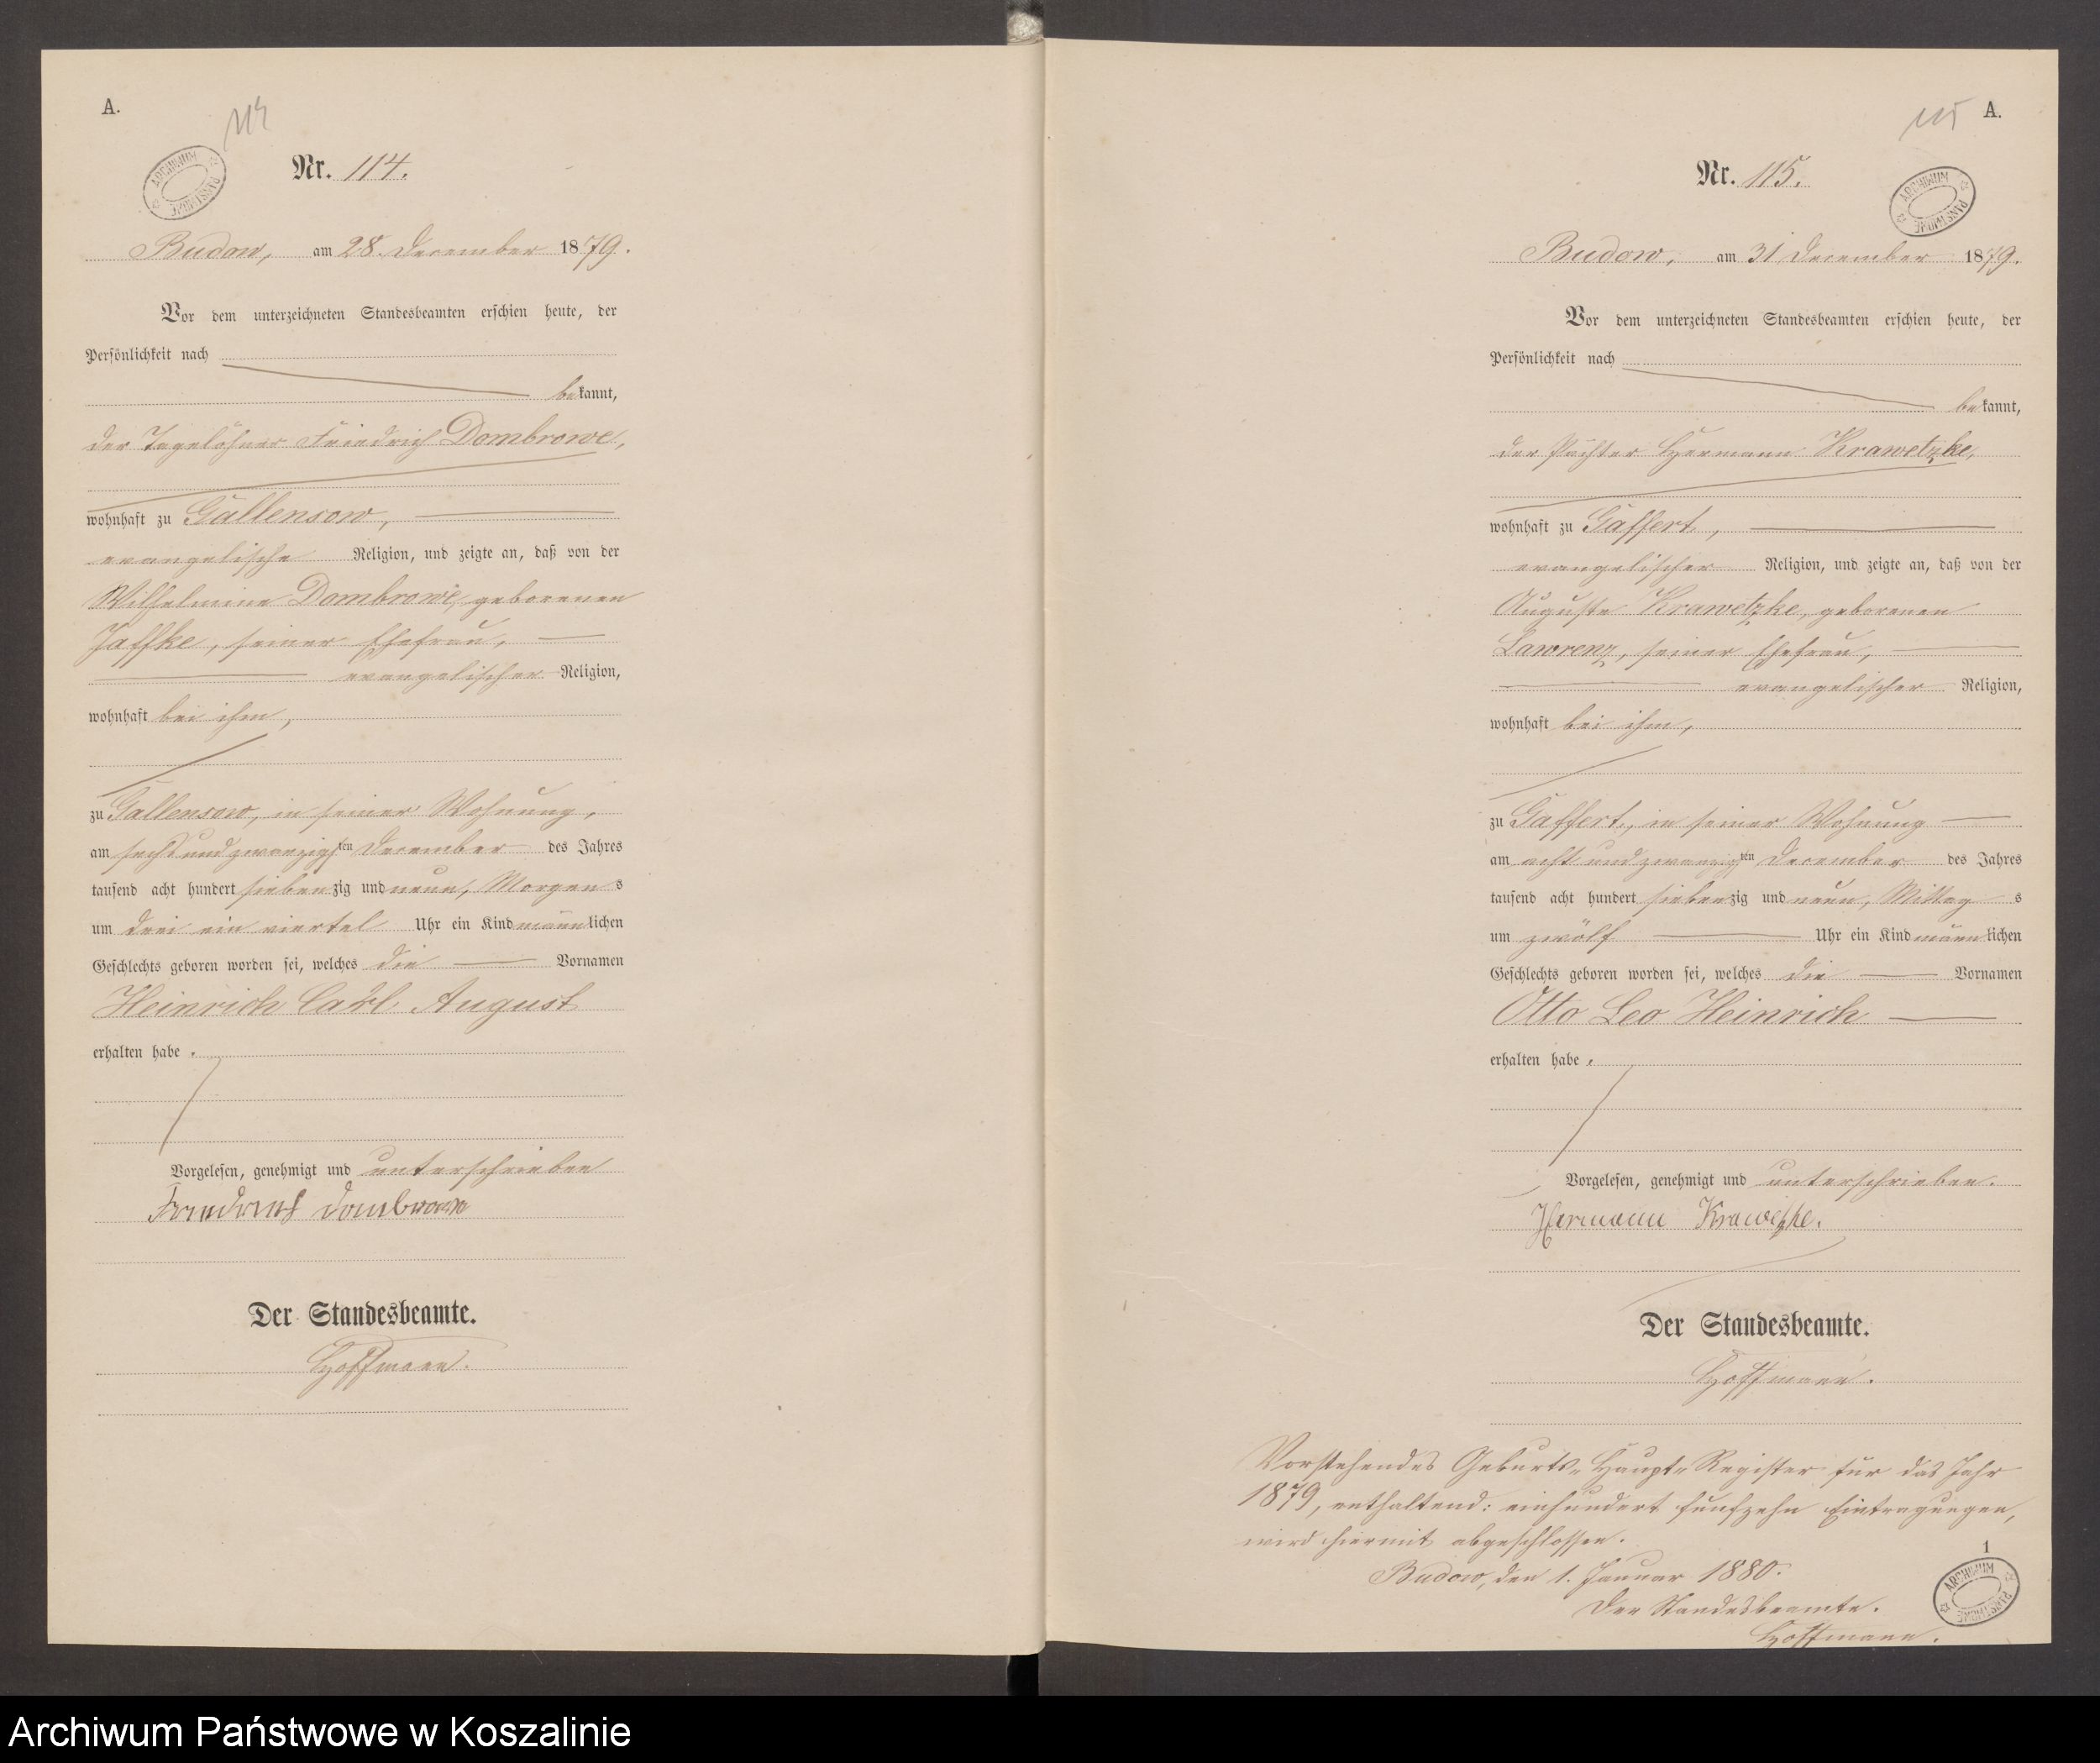 A.
114
ARCHIWUM PAŃSTWOWE
Nr. 114.
Budow, am 28. December 1879.
Vor dem unterzeichneten Standesbeamten erschien heute, der
Persönlichkeit nach
bekannt,
der Tagelöhner Friedrich Dombrowe,
wohnhaft zu Gallensow,
evangelische Religion, und zeigte an, daß von der
Wilhelmine Dombrowe, geborenen
Jaffke, seiner Ehefrau,
evangelischer Religion,
wohnhaft bei ihm,
zu Gallensow, in seiner Wohnung,
am sechs und zwanzigsten December des Jahres
tausend acht hundert siebenzig und neun, Morgens
um drei ein viertel Uhr ein Kind männlichen
Geschlechts geboren worden sei, welches die Vornamen
Heinrich Carl August
erhalten habe.
Vorgelesen, genehmigt und unterschrieben
Friedrich Dombrown
Der Standesbeamte.
Hoffmann.
115
A.
Nr. 115.
ARCHIWUM PAŃSTWOWE
Budow, am 31 December 1879.
Vor dem unterzeichneten Standesbeamten erschien heute, der
Persönlichkeit nach
bekannt,
der Pächter Hermann Krawetzke,
wohnhaft zu Gaffert,
evangelischer Religion, und zeigte an, daß von der
Auguste Krawetzke, geborenen
Lawrenz, seiner Ehefrau,
evangelischer Religion,
wohnhaft bei ihm,
zu Gaffert, in seiner Wohnung
am acht und zwanzigsten December des Jahres
tausend acht hundert siebenzig und neun, Mittags
um zwölf Uhr ein Kind männlichen
Geschlechts geboren worden sei, welches die Vornamen
Otto Leo Heinrich
erhalten habe.
Vorgelesen, genehmigt und unterschrieben.
Hermann Krawetzke.
Der Standesbeamte.
Hoffmann.
Vorstehendes Geburts-Haupt-Register für das Jahr
1879, enthaltend: einhundert funfzehn Eintragungen,
wird hiermit abgeschlossen.
Budow, den 1. Januar 1880.
Der Standesbeamte.
Hoffmann.
1
ARCHIWUM PAŃSTWOWE
Archiwum Państwowe w Koszalinie